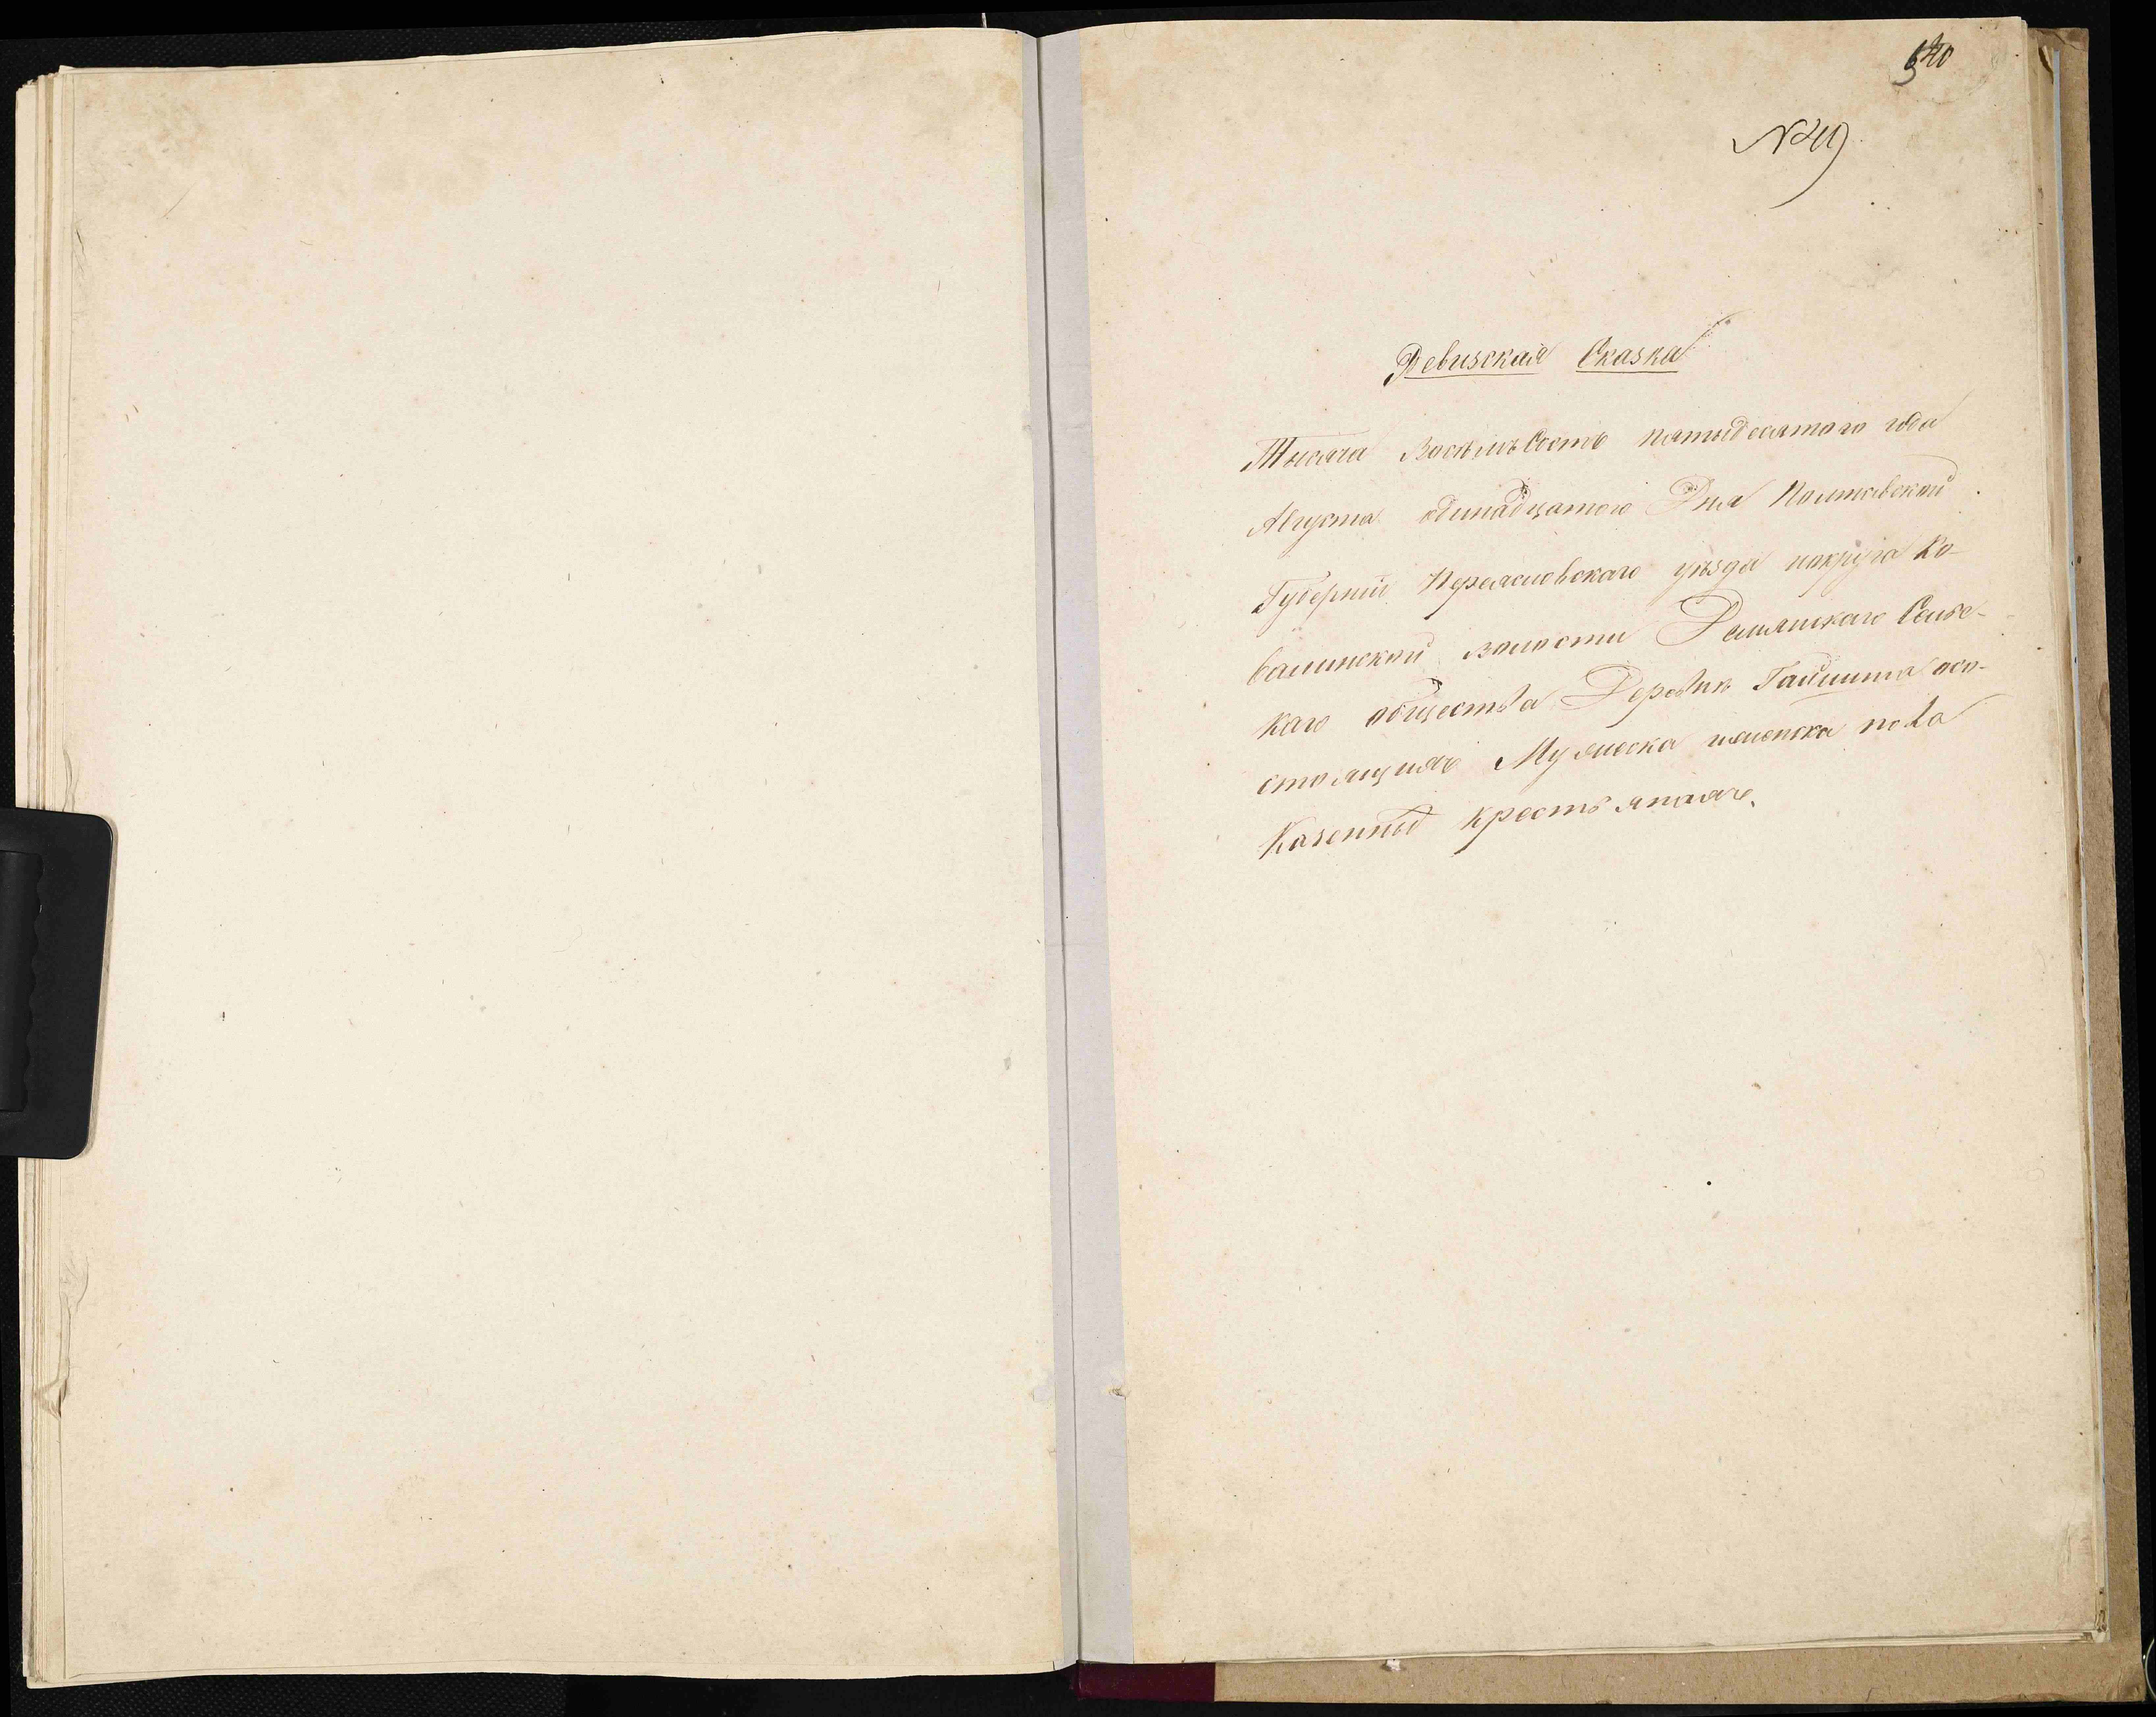 640
№ 49
Ревизская Сказка
Тысяча Восемьсотъ пятьдесятаго года
Августа одинадцатого Дня Полтавской
Губерніи Переясловскаго уѣзда округа Ко-
валинской волости Демянскаго Сельс-
каго общества Деревнѣ Гайшина осо-
стоящихъ Мужеска женска пола
Казенныхъ крестьянахъ.